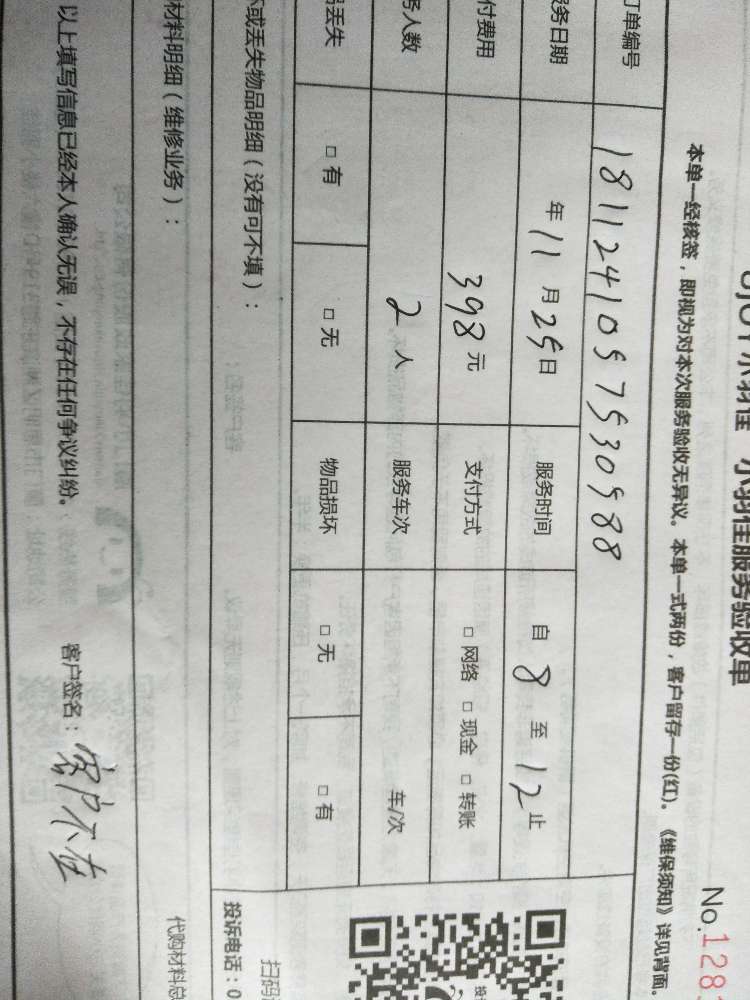 小羽佳 小羽佳服务验收单
No.128
本单一经核签，即视为对本次服务验收无异议。本单一式两份，客户留存一份(红)。《维保须知》详见背面。
订单编号 1811241057530988
务日期 年 11 月 25 日 服务时间 自 8 至 12 止
付费用 398 元 支付方式 □ 网络 □ 现金 □ 转账
务人数 2 人 服务车次 车/次
丢失 □ 有 □ 无 物品损坏 □ 无 □ 有
坏或丢失物品明细（没有可不填）：
扫码
投诉电话：0
材料明细（维修业务）：
代购材料总
以上填写信息已经本人确认无误，不存在任何争议纠纷。 客户签名：客户不在